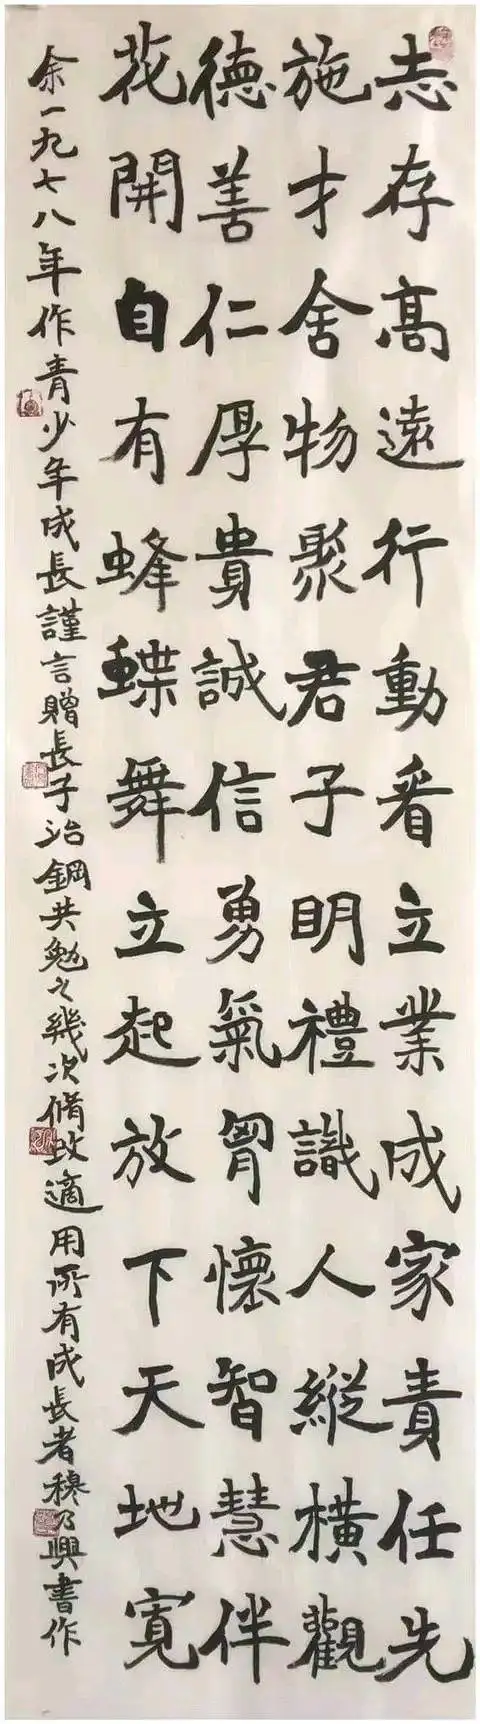 志存高遠行動看立業成家責任先
施才舍物聚君子明禮識人縱橫觀
德善仁厚貴誠信勇氣胷懷智慧伴
花開自有蜂蝶舞立起放下天地寬
余一九七八年作青少年成長謹言贈長子治鋼共勉之幾次脩改適用所有成長者穆乃興書作